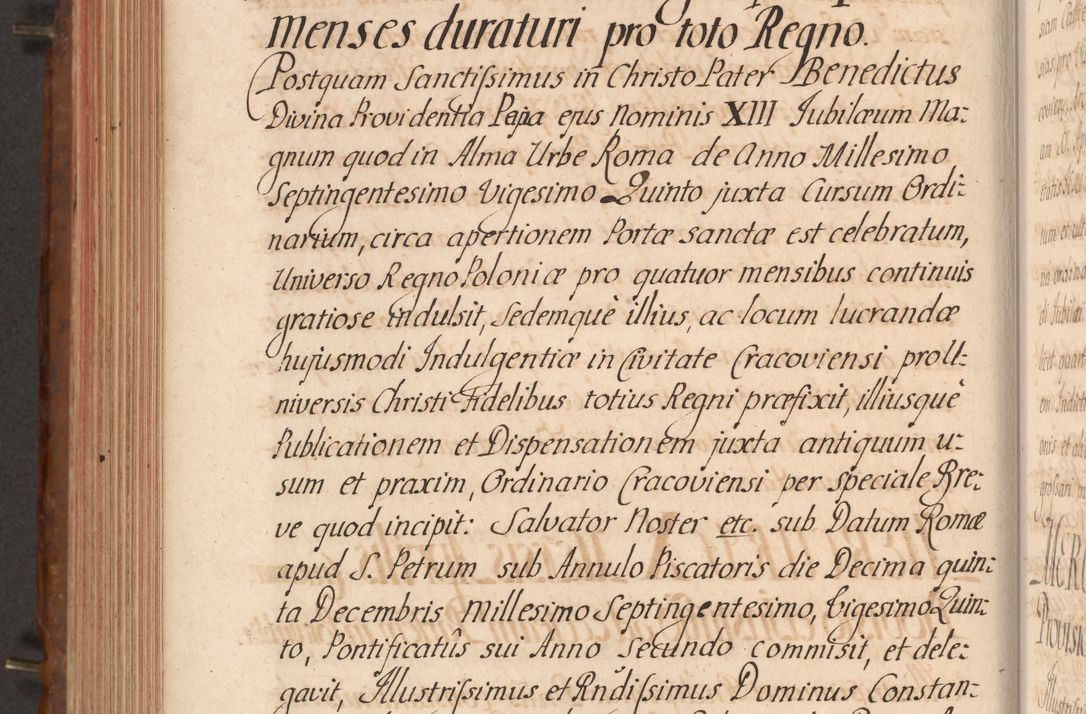 menses duraturi pro toto Regno.
Postquam Sanctissimus in Christo Pater Benedictus
Divina Providentia Papa ejus Nominis XIII Jubilæum Ma:
gnum quod in Alma Urbe Roma de Anno Millesimo
Septingentesimo Vigesimo Quinto juxta Cursum Ordi:
narium, circa apertionem Portæ sanctæ est celebratum,
Universo Regno Poloniæ pro quatuor mensibus continuis
gratiose indulsit, Sedemquè illius, ac locum lucrandæ
hujusmodi Indulgentiæ in Civitate Cracoviensi pro U:
niversis Christi Fidelibus totius Regni præfixit, illiusquè
Publicationem et Dispensationem juxta antiquum u:
sum et praxim, Ordinario Cracoviensi per speciale Bre:
ve quod incipit: Salvator Noster etc. sub Datum Romæ
apud S. Petrum sub Annulo Piscatoris die Decima quin:
ta Decembris Millesimo Septingentesimo, Vigesimo Quin:
to, Pontificatûs sui Anno Secundo commisit, et dele:
gavit, Illustrissimus et Rndissimus Dominus Constan: